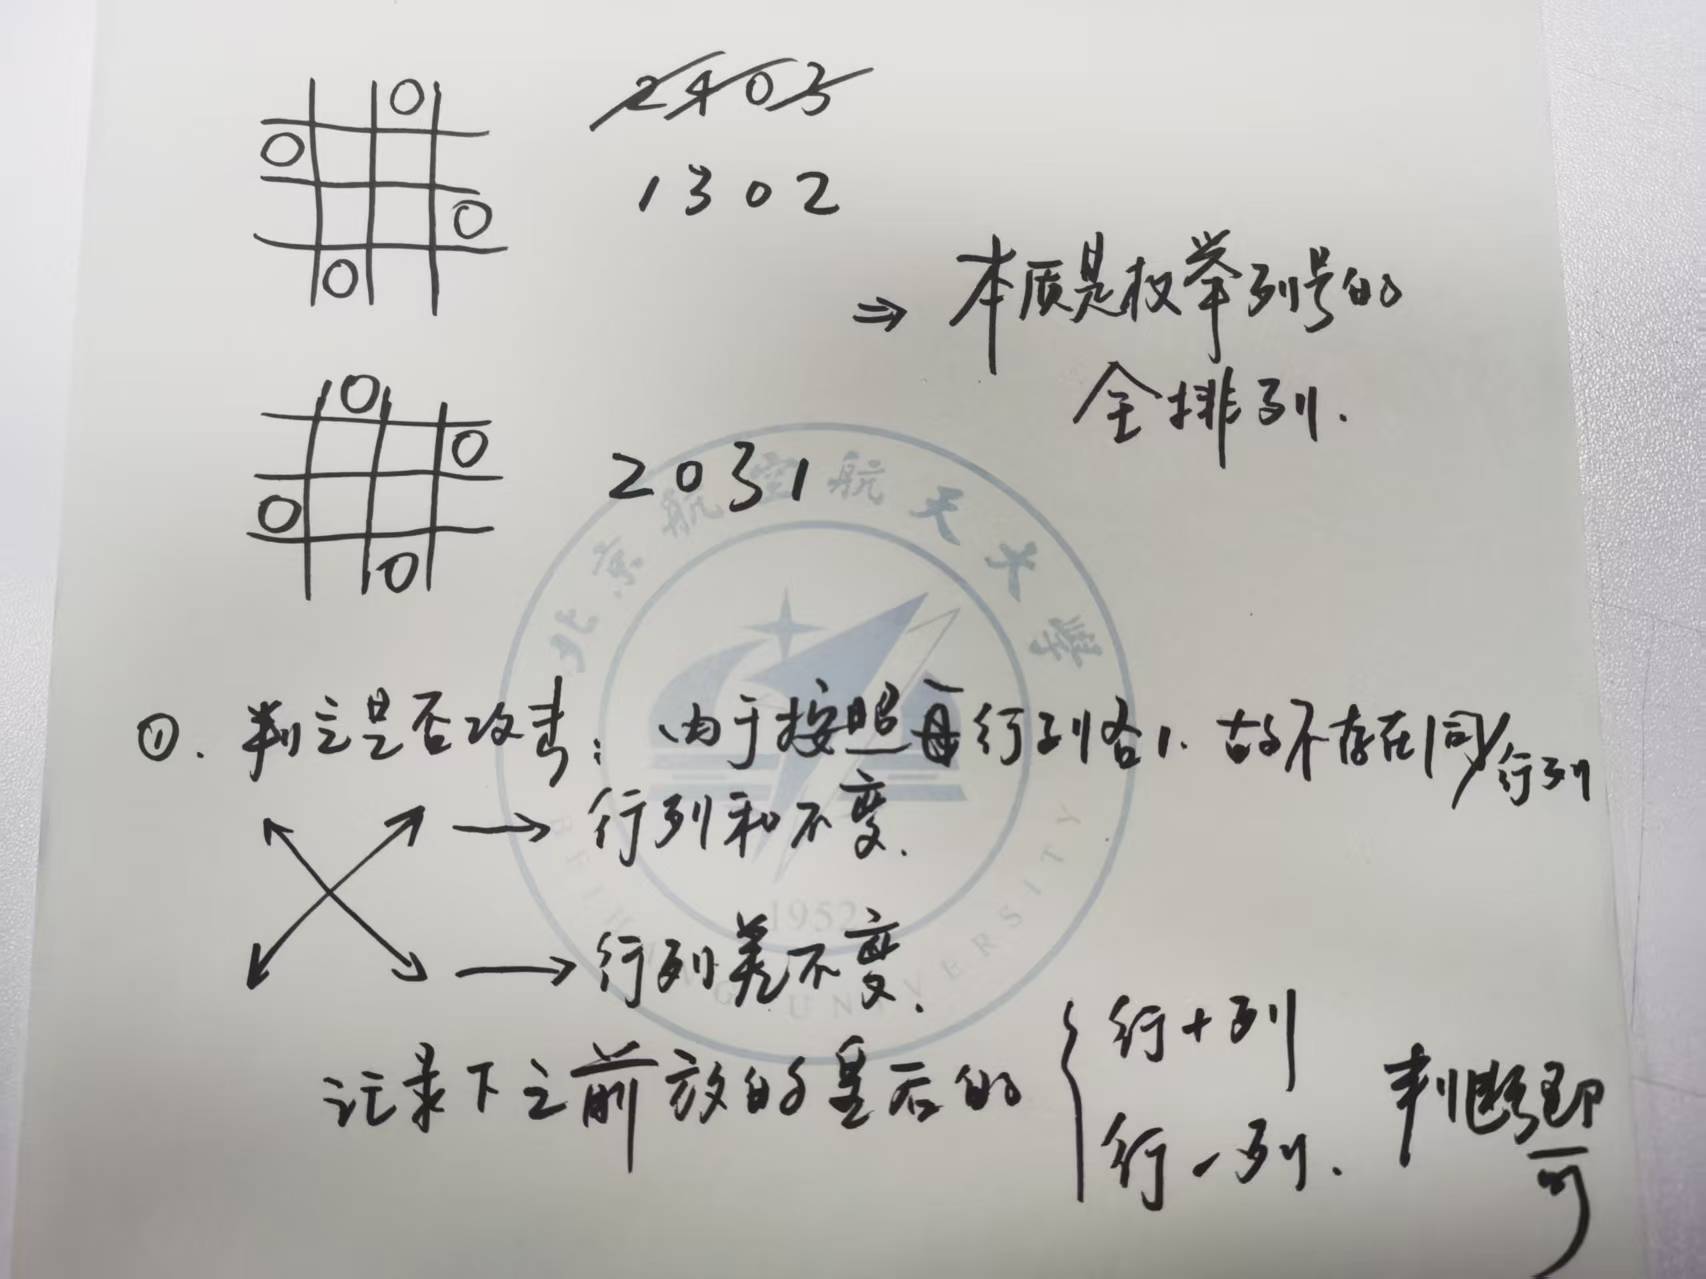 2403
1302
⇒ 本质是枚举列号的
全排列.
2031
①. 判定是否攻击: 由于按照每行列各1. 故不存在同行列
→ 行列和不变.
→ 行列差不变.
记录下之前放的皇后的 { 行+列
行-列. 判断即可
北京航空航天大学
BEIHANG UNIVERSITY
1952